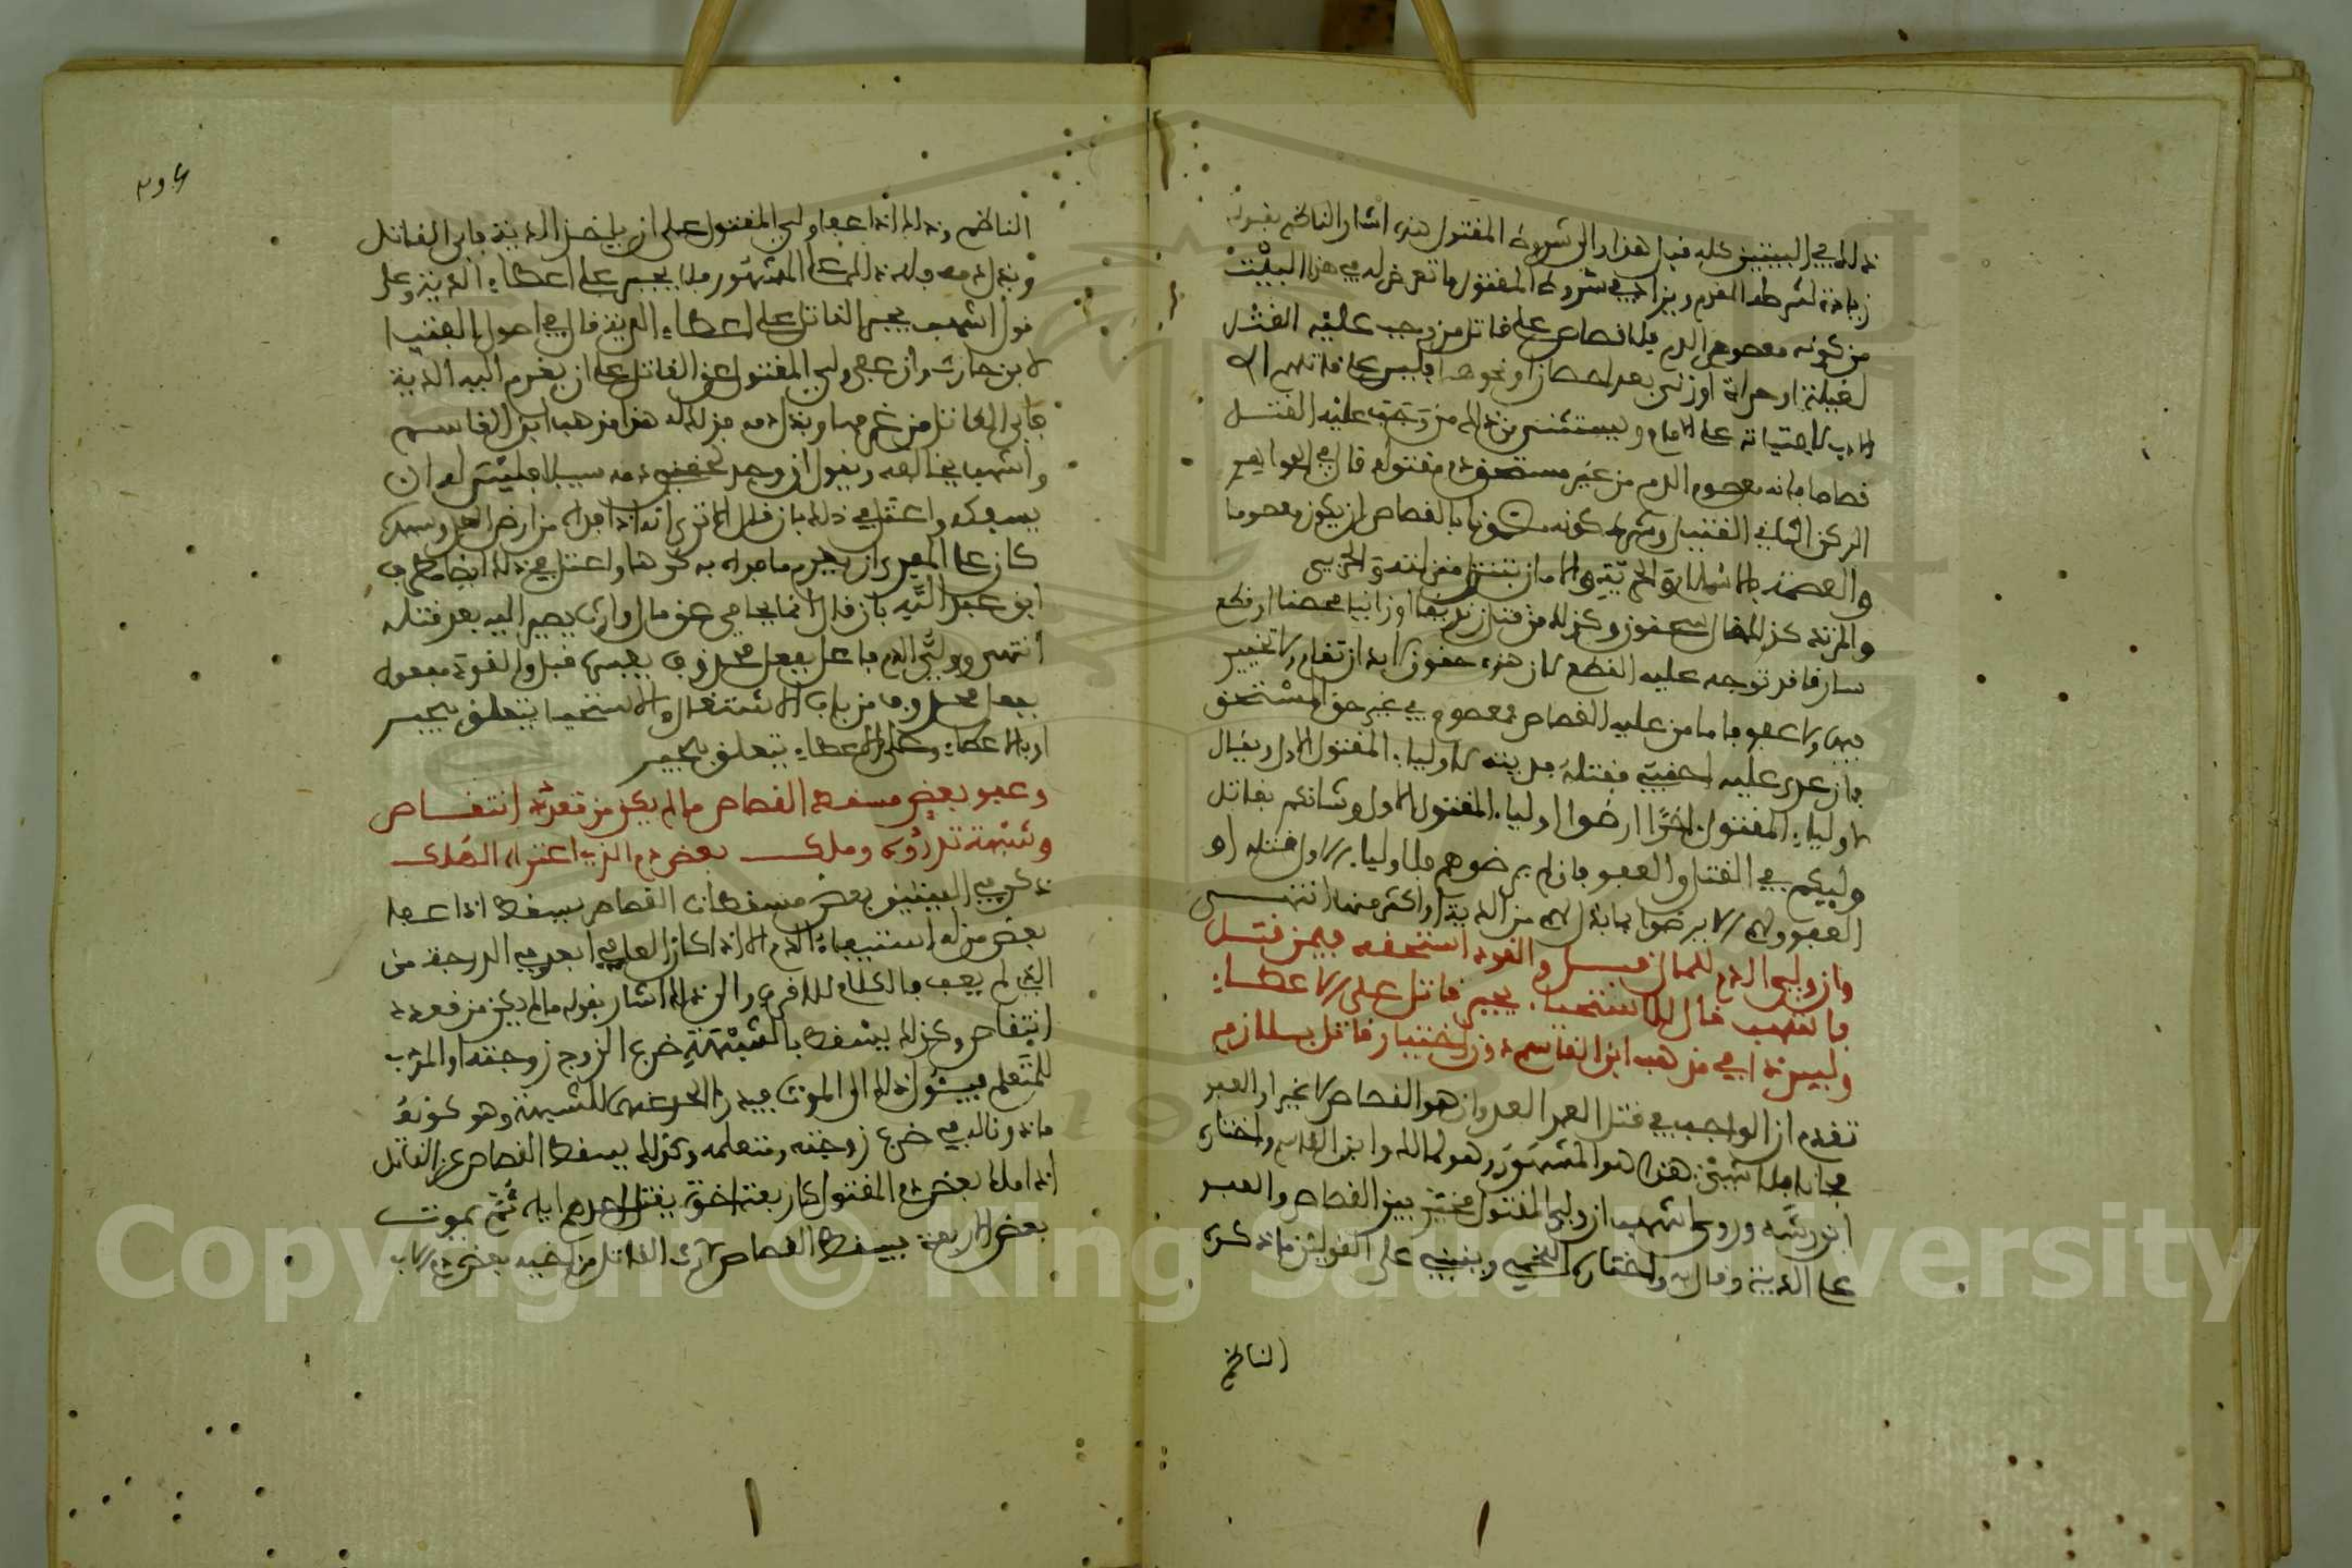 ذلك في البيتين كله قبل هذا والى شروط المقتول هذه اشار الناظم بقوله
زيادة لشرطه المقدم ويزاد في شروط المقتول ما تعرض له في هذا البيت
من كونه معصوم الدم فلا قصاص على قاتل من وجب عليه القتل
لغيلة او حرابة او زنى بعد احصان او نحوها وليس على قاتلهم الا
الادب لافتياته على الامام ويستثنى من ذلك من وجب عليه القتل
قصاصا فانه معصوم الدم من غير مستحق دم مقتوله قال في الجواهر
الركن الثاني القتيل وشرط كونه مضمونا بالقصاص ان يكون معصوما
والعصمة بالاسلام والحرية والامان
والمرتد كذلك وكذلك من قتل زنديقا او زانيا محصنا او قطع
سارقا قد توجه عليه القطع لان هذه حقوق لا بد ان تقام لا تخيير
فيها ولا عفو فاما من عليه القصاص فمعصوم في غير حق المستحق
فان عدى عليه اجنبي فقتله فديته لاولياء المقتول الاول ويقال
لاولياء المقتول اخرا ارضوا اولياء المقتول الاول وشانكم بقاتل
وليكم في القتل والعفو فان لم يرضوهم فلاولياء الاول قتله او
العفو ولهم الا يرضوا بما بذل لهم من الدية او اكثر منها انتهى
وان ولي الدم للمال قبل والقود استحقه فيمن قتل
فاشهب قال للاستحيا يجبر قاتل على الاعطاء
وليس ذا في مذهب ابن القاسم دون اختيار قاتل بلازم
تقدم ان الواجب في قتل العمد العدوان هو القصاص لا غير او العفو
مجانا بلا شيء هذا هو المشهور وهو لمالك وابن القاسم واختاره
ابن رشد وروى اشهب ان ولي المقتول مخير بين القصاص والعفو
على الدية وقال به واختاره اللخمي وينبني على القولين ما ذكره
الناظم
الناظم وذلك اذا عفا ولي المقتول على ان ياخذ الدية فابى القاتل
وبذل دمه فله ذلك على المشهور فلا يجبر على اعطاء الدية وعلى
قول اشهب يجبر القاتل على اعطاء الدية قال في اصول الفتيا
لابن حارث وان عفى ولي المقتول عن القاتل على ان يغرم اليه الدية
فابى القاتل من غرمها وبذل دمه فذلك له هذا مذهب ابن القاسم
واشهب يخالفه ويقول ان وجد لحقن دمه سبيلا فليس له ان
يسفكه واعتل في ذلك بان قال الا ترى انه اذا فداه من ارض العدو مسلم
كان على المفدي ان يغرم ما فداه به كرها واعتل في ذلك ايضا مطرف
ابن عبد الله بان قال انما يحامي عن مال وارث يصير اليه بعد قتله
انتهى وولي الدم فاعل بفعل محذوف يفسره قبل والقود مفعول
بفعل محذوف من باب الاشتغال وللاستحيا يتعلق بيجبر
او بالاعطاء وعلى الاعطاء يتعلق بيجبر
وعفو بعض مسقط القصاص ما لم يكن من قعدد انتقاص
وشبهة تدرؤه وملك بعض دم الذي اعتراه الهلك
ذكر في البيتين بعض مسقطات القصاص يسقط اذا عفا
بعض من له استيفاء الدم الا اذا كان العافي ابعد في الدرجة من
الذي لم يعف فالكلام للاقرب والى ذلك اشار بقوله ما لم يكن من قعدد
انتقاص وكذلك يسقط بالشبهة ضرب الزوج زوجته او المؤدب
للمتعلم فيئول ذلك الى الموت فيدرا الحد عنه للشبهة وهو كونه
ماذونا له في ضرب زوجته ومتعلمه وكذلك يسقط القصاص عن القاتل
اذا ملك بعض دم المقتول كاربعة اخوة يقتل احدهم اباه ثم يموت
بعض الاربعة فيسقط القصاص لارث القاتل من اخيه بعض دم الاب